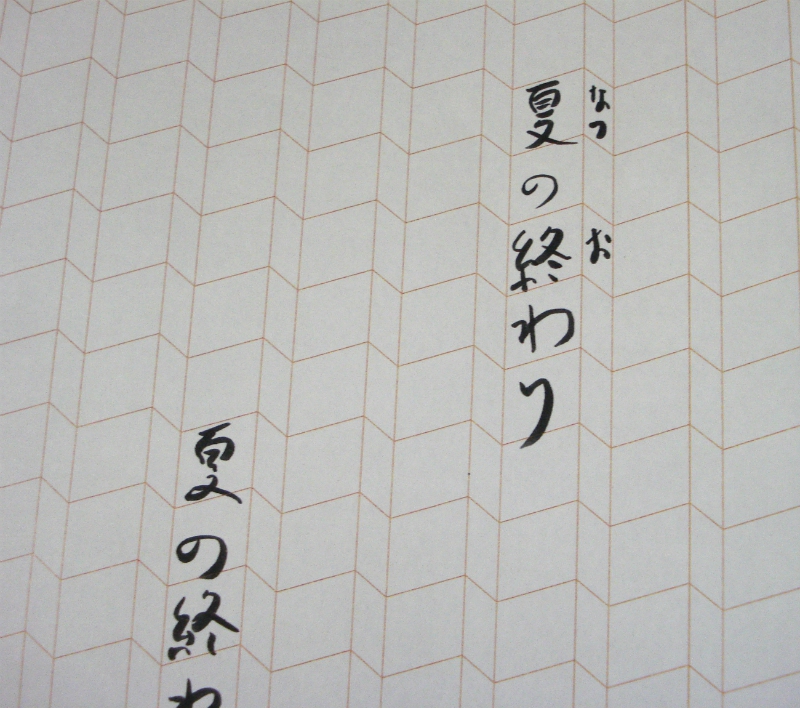 なつ
お
夏の終わり
夏の終わ